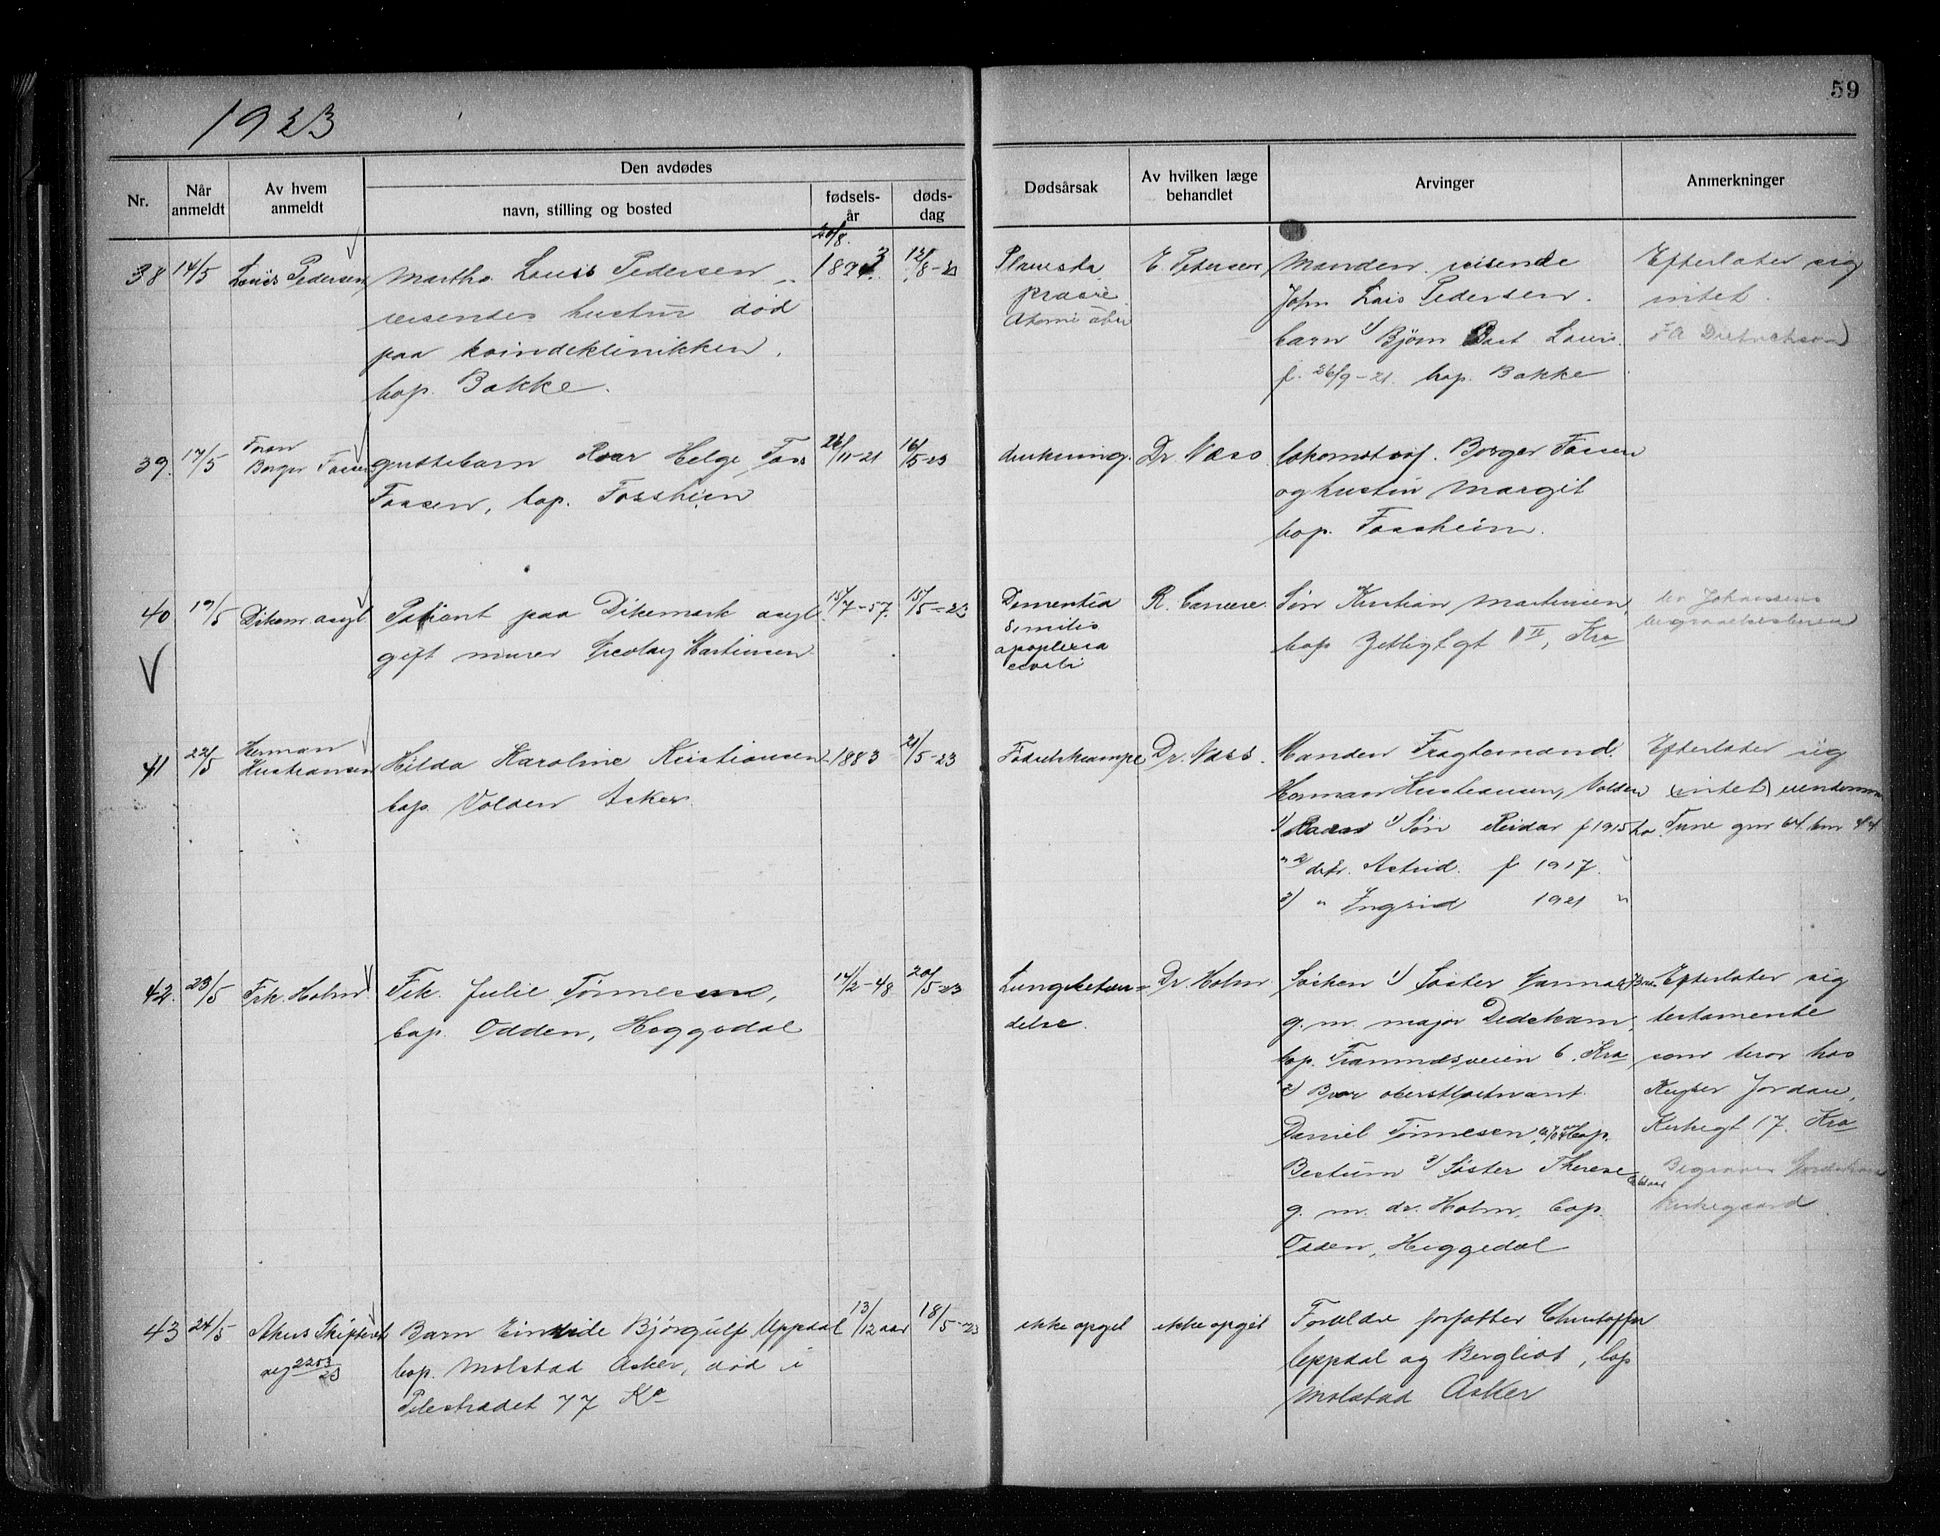 1923
59
Nr.
Når anmeldt
Av hvem anmeldt
Den avdødes
navn, stilling og bosted
fødsels-år
døds-dag
Dødsårsak
Av hvilken læge behandlet
Arvinger
Anmerkninger
38 14/5 Louis Pedersen
Martha Louis Pedersen
reisendes hustru død
paa kvindeklinikken.
bop. Bakke.
20/8.
1873
12/
Placenta
prævia
E. Pedersen
Manden reisende
John Louis Pedersen.
barn 1) Bjørn Louis
f. 26/9-21. bop. Bakke
Efterlater sig
intet.
39. 17/5
Borger Fossen
guttebarn Roar Helge
Fossen, bop. Fossheim
/11-21
16/5-23
drukning.
Dr. Næss
Borger Fossen
og hustru Margit
bop. Fossheim.
40 19/5 Dikem. asyl
Patient paa Dikemark asyl
gift murer Martinsen
15/7-57.
15/5-23
Dementia
senilis
apoplexia
R.
Søn Kristian Martinsen
bop II, Kra
41 22/5 Herman
Kristiansen
Hilda Karoline Kristiansen
bop. Volden Asker.
1883
21/5-23
Dr. Næss.
Manden Fragtemand
Herman Kristiansen, Volden
1) Søn Reidar f 1915
2 dtr. Astrid. f 1917.
3) " Ingrid 1921 "
Efterlater sig
(intet) eiendommen
Tune gnr 64 bnr 44
42. 23/5 Frk. Holm
Frk. Julie Tønnesen,
bop. Odden, Heggedal
14/2-48
20/5-23
Lungebetæn-
delse.
Dr. Holm
Søsken 1) Søster
g. m. major
bop. Framnæsveien 6. Kra
2) Bror oberstløitnant
Daniel Tønnesen, bop.
Bestum 3) Søster Therese
g. m. dr. Holm, bop.
Odden, Heggedal
Efterlater sig
testamente
som beror hos
Keyser Jordan,
Kirkegt 17. Kra
kirkegaard
43 24/5 Akers Skifteret
2253/23
Barn Eindride Bjørgulf Uppdal
bop. Molstad Asker, død i
Pilestrædet 77 Kra
13/12 aar
18/5-23
ikke opgit
ikke opgit
Forældre forfatter Christoffer
Uppdal og Bergliot, bop
Molstad Asker